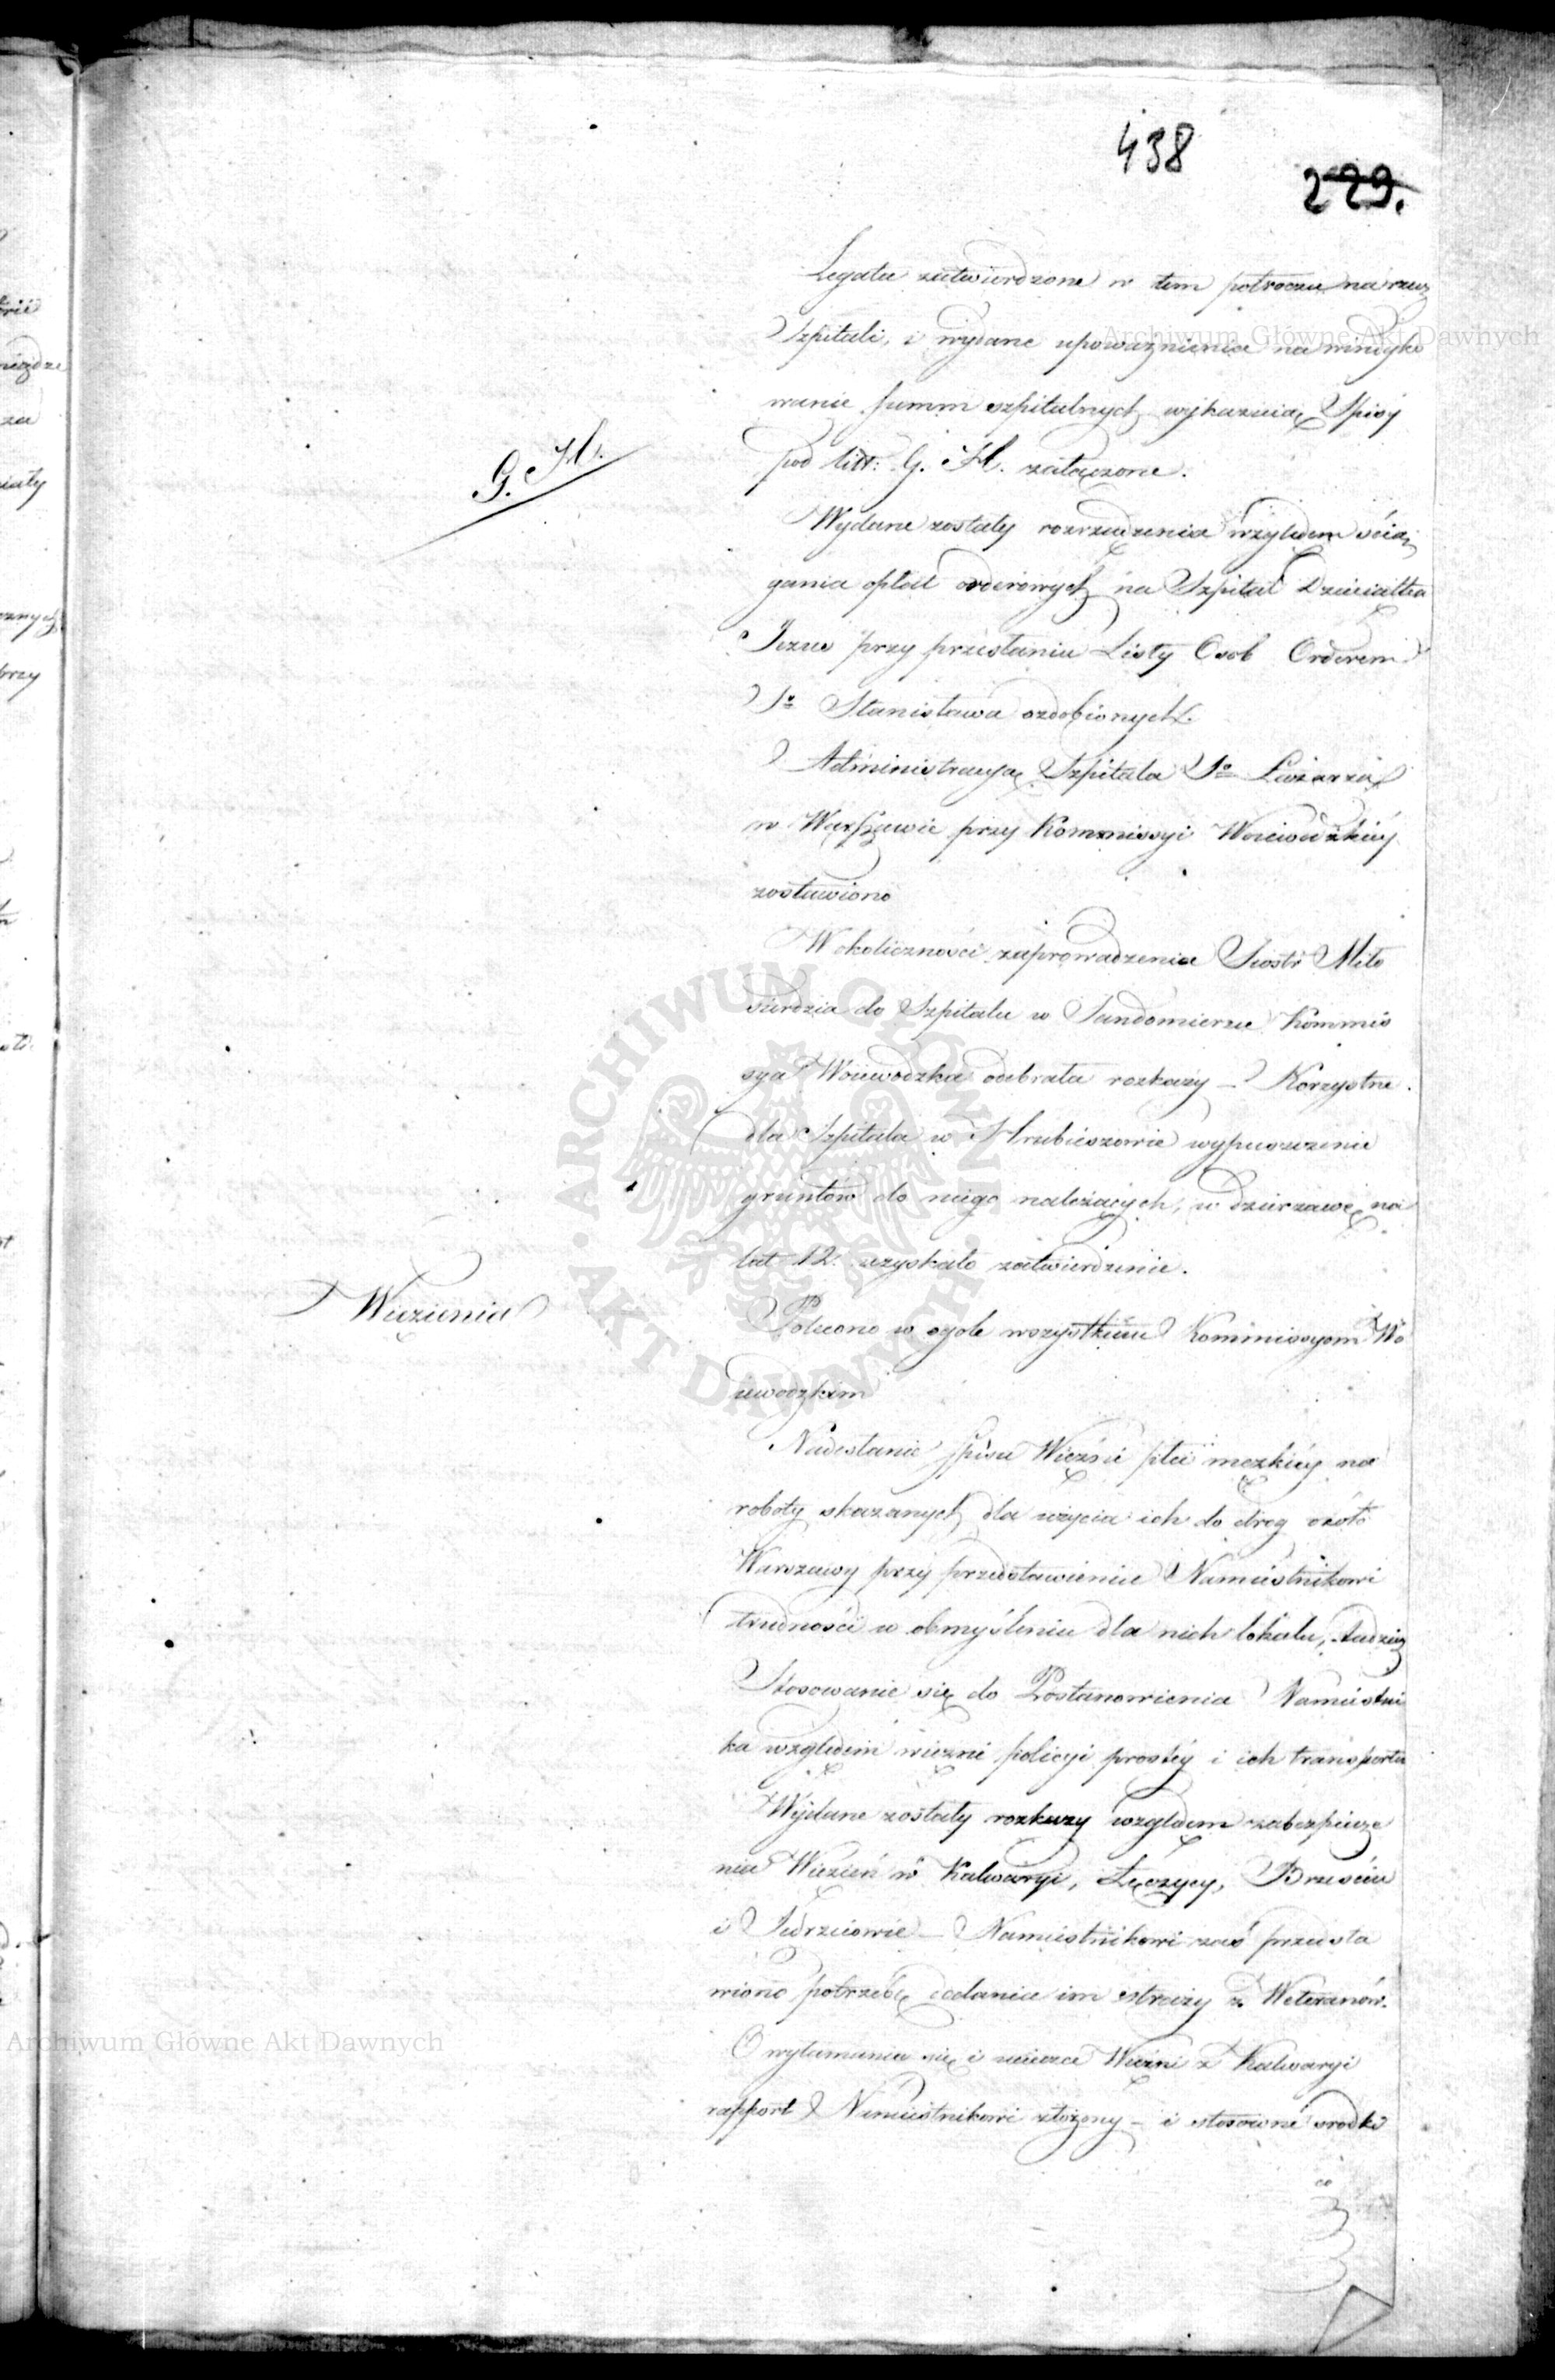 438
229.
Legata zatwierdzone w tem połroczu na rzecz
Szpitali, i wydane upoważnienia na windyko
wanie summ szpitalnych wykazuią Spisy
G. H.
pod litt: G. H. załączone.
Wydane zostały rozrządzenia względem ścią
gania opłat orderowych na Szpital Dzieciątka
Jezus przy przesłaniu Listy Osob Orderem
So Stanisława ozdobionych.
Administracyą Szpitala So Łazarza
w Warszawie przy Kommissyi Woiewodzkiey
zostawiono
W okoliczności zaprowadzenia Siostr Miło
sierdzia do Szpitalu w Sandomierzu Kommis
sya Woiewodzka odebrała rozkazy – Korzystne
dla Szpitala w Hrubieszowie wypuszczenie
gruntów do niego należących, w dzierzawę na
lat 12. uzyskało zatwierdzenie.
Więzienia
Polecono w ogole wszystkim Kommissyom Wo
iewodzkim
Nadesłanie spisu Więźni płci męzkiey na
roboty skazanych dla użycia ich do dróg około
Warszawy przy przedstawieniu Namiestnikowi
trudności w obmyśleniu dla nich lokalu, tudzież
Stosowanie się do Postanowienia Namiestni
ka względem więzni policyi prostéy i ich transportu
Wydane zostały rozkazy względem zabezpiecze
nia Więzień w Kalwaryi, Łęczycy, Brześciu
i Jędrzeiowie – Namiestnikowi zaś przedsta
wiono potrzebę dodania im straży z Weteranów.
O wyłamaniu się i ucieczce Więźni z Kalwaryi
rapport Namiestnikowi złożony – i stosowne srodki
Archiwum Główne Akt Dawnych
Archiwum Główne Akt Dawnych
ARCHIWUM GŁÓWNE AKT DAWNYCH